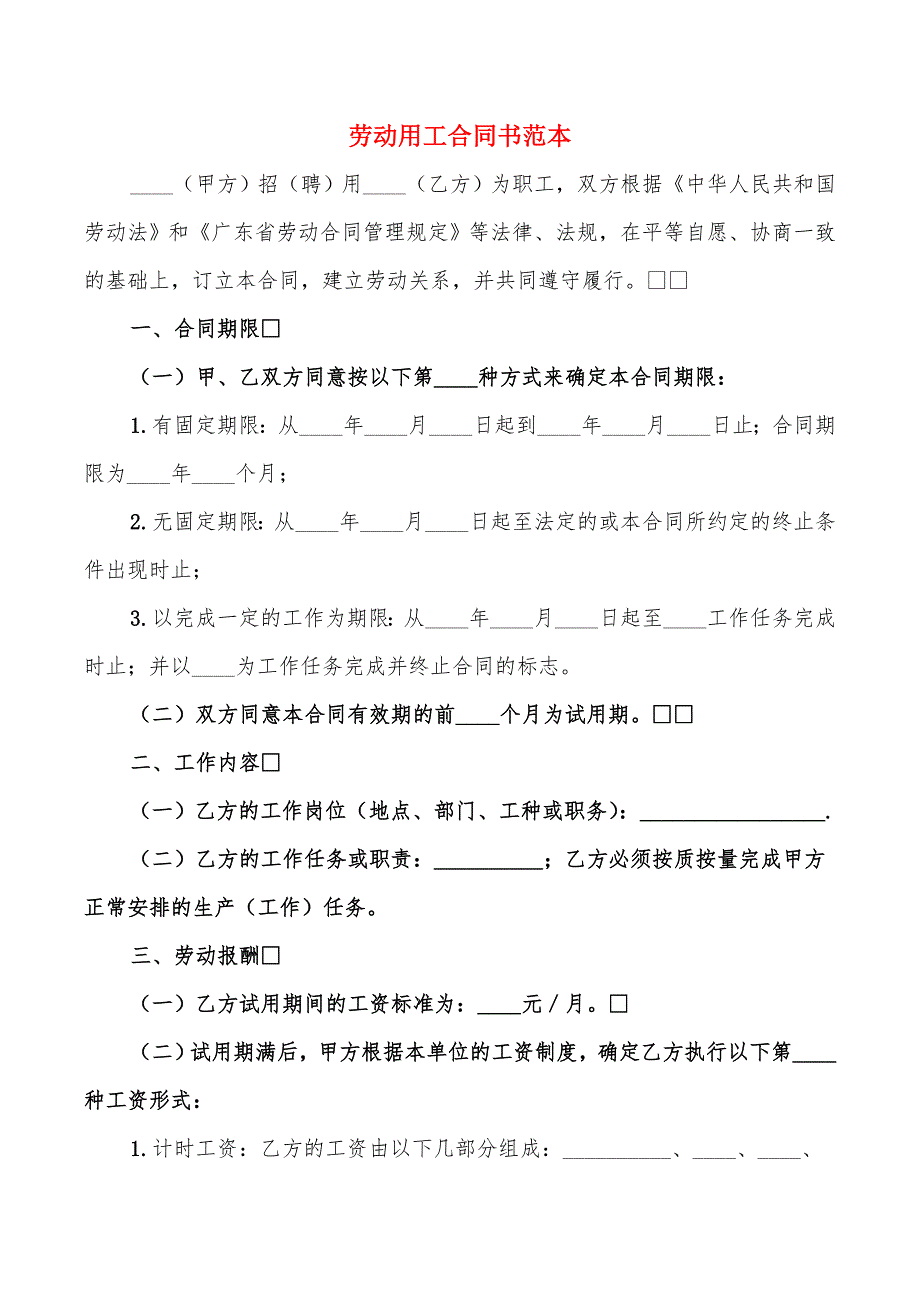 劳动用工合同书范本
____（甲方）招（聘）用____（乙方）为职工，双方根据《中华人民共和国
劳动法》和《广东省劳动合同管理规定》等法律、法规，在平等自愿、协商一致
的基础上，订立本合同，建立劳动关系，并共同遵守履行。□□
一、合同期限□
（一）甲、乙双方同意按以下第____种方式来确定本合同期限：
1.有固定期限：从____年____月____日起到____年____月____日止；合同期
限为____年____个月；
2.无固定期限：从____年____月____日起至法定的或本合同所约定的终止条
件出现时止；
3.以完成一定的工作为期限：从____年____月____日起至____工作任务完成
时止；并以____为工作任务完成并终止合同的标志。
（二）双方同意本合同有效期的前____个月为试用期。□□
二、工作内容□
（一）乙方的工作岗位（地点、部门、工种或职务）：_________________.
（二）乙方的工作任务或职责：__________；乙方必须按质按量完成甲方
正常安排的生产（工作）任务。
三、劳动报酬□
（一）乙方试用期间的工资标准为：____元／月。□
（二）试用期满后，甲方根据本单位的工资制度，确定乙方执行以下第____
种工资形式：
1.计时工资：乙方的工资由以下几部分组成：__________、____、____、